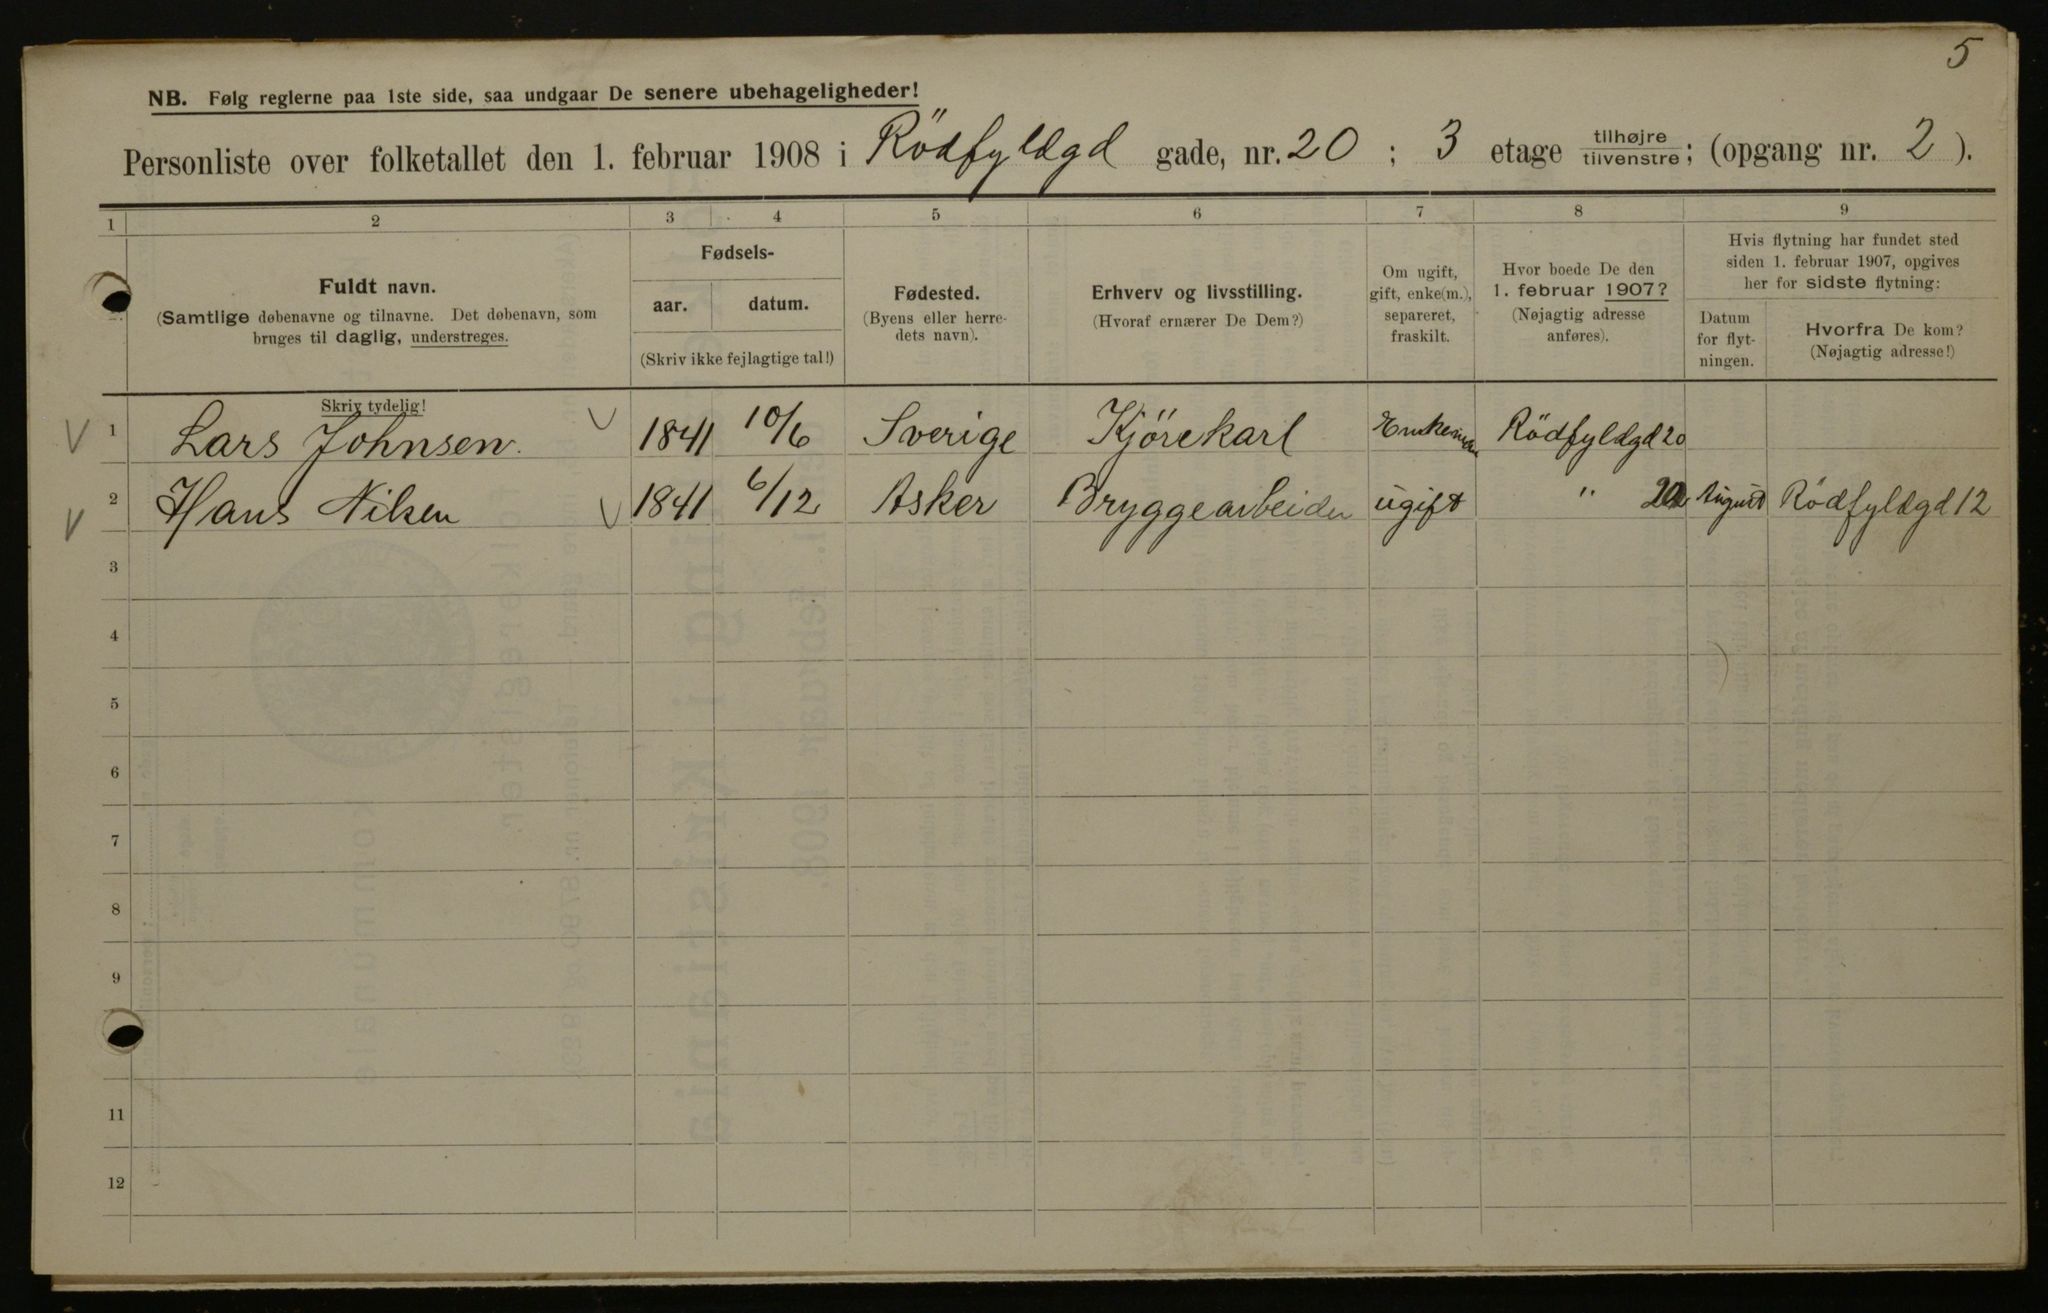 5
NB. Følg reglerne paa 1ste side, saa undgaar De senere ubehageligheder!
Personliste over folketallet den 1. februar 1908 i Rödfyldgd gade, nr. 20 ; 3 etage tilhøjre tilvenstre; (opgang nr. 2 ).
1 2 3 4 5 6 7 8 9
Fuldt navn.
(Samtlige døbenavne og tilnavne. Det døbenavn, som
bruges til daglig, understreges.
Fødsels-
aar. datum.
(Skriv ikke fejlagtige tal!)
Fødested.
(Byens eller herre-
dets navn).
Erhverv og livsstilling.
(Hvoraf ernærer De Dem?)
Om ugift,
gift, enke(m.),
separeret,
fraskilt.
Hvor boede De den
1. februar 1907?
(Nøjagtig adresse
anføres).
Hvis flytning har fundet sted
siden 1. februar 1907, opgives
her for sidste flytning:
Datum
for flyt-
ningen.
Hvorfra De kom?
(Nøjagtig adresse!)
Skriv tydelig!
1 Lars Johnsen. 1841 10/6 Sverige Kjörekarl Enkeman Rödfyldgd 20
2 Hans Nilsen 1841 6/12 Asker Bryggearbeider ugift " August Rödfyldgd 12
3
4
5
6
7
8
9
11
12